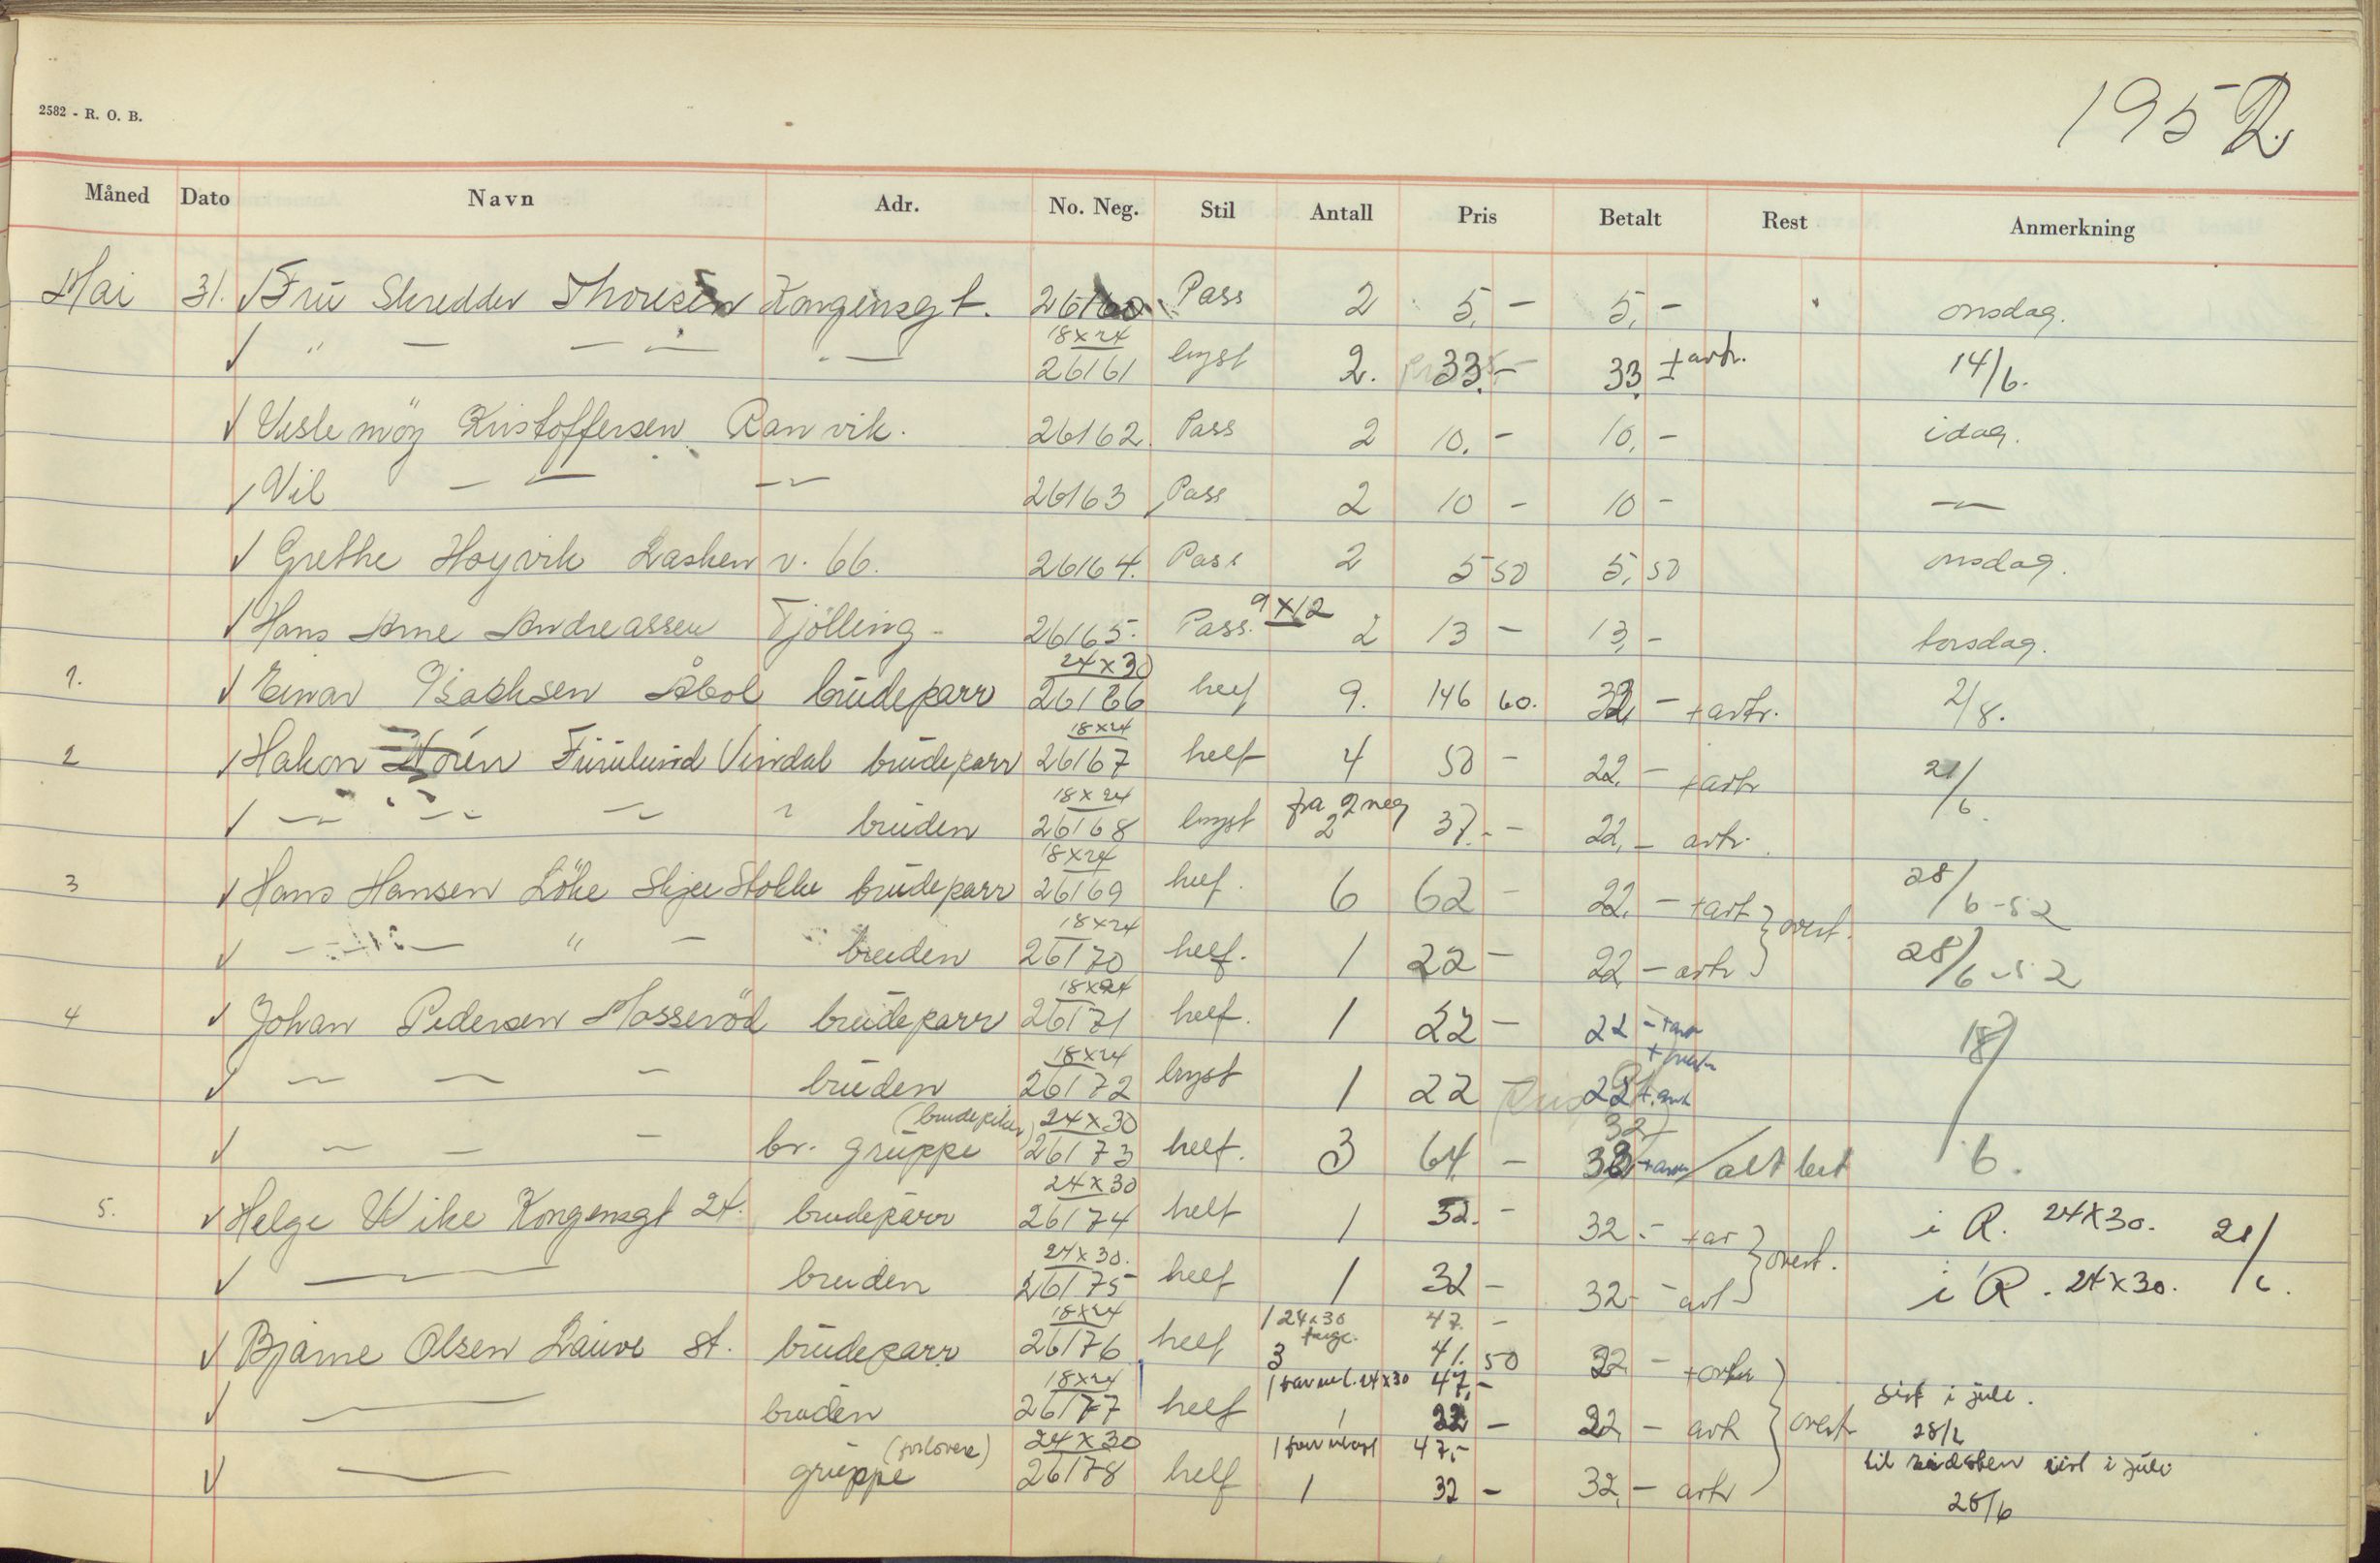 2582 - R. O. B.
1952
Måned Dato Navn Adr. No. Neg. Stil Antall Pris Betalt Rest Anmerkning
Mai 31. √ Fru Skredder Thorsen Kongensgt. 26160 Pass 2 5,- 5,- onsdag.
18x24
√ " — — — — 26161 bryst 2. 33,- 33 + artr. 14/6.
√ Veslemöy Kristoffersen Ranvik. 26162. Pass 2 10.- 10,- idag.
√ Vil — — — 26163 Pass 2 10 - 10 - —
√ Grethe Hoyvik Lasken v. 66. 26164. Pass 2 5 50 5,50 onsdag.
√ Hans Arne Andreassen Tjölling - 26165. Pass. 9x12 2 13 - 13,- torsdag.
24x30
1. √ Einar Isachsen brudeparr 26166 helf 9. 146 60. 32 - + artr. 2/8.
18x24
2 √ Hakon Furulund Vindal brudeparr 26167 helf 4 50 - 22,- + artr 21/6.
18x24 fra 2 neg
√ — — — " bruden 26168 bryst 2 37.- 22,- artr.
18x24
3 √ Hans Hansen Löke Skjee Stokke brudeparr 26169 helf. 6 62 - 22,- + art } overt. 28/6-52
18x24
√ — — " — bruden 26170 helf. 1 22 - 22 - artr 28/6-52
18x24
4 √ Johan Pedersen Mosseröd brudeparr 26171 helf. 1 22 - 22 -
18x24
√ — — — bruden 26172 bryst 1 22 - 22
(brudepiker) 24x30 32
√ — — — br. gruppe 26173 helf. 3 64 - alt bet 6.
24x30
5. √ Helge Wike Kongensgt 24. brudeparr 26174 helf 1 32.- 32.- + ar } overt. i R. 24x30. 21/6.
24x30.
√ — bruden 26175 helf 1 32 - 32 - art i R. 24x30.
18x24 1 24x30 47. -
farge.
√ Bjarne Olsen Lauve st. brudeparr 26176 helf 3 41. 50 22 - + artr
18x24 1 24x30 47,-
√ — bruden 26177 helf 1 22 - 22 - artr } overt sist i juli.
28/6
(forlovere) 24x30 47,-
√ — gruppe 26178 helf 1 32 - 32,- artr til sist i juli
28/6